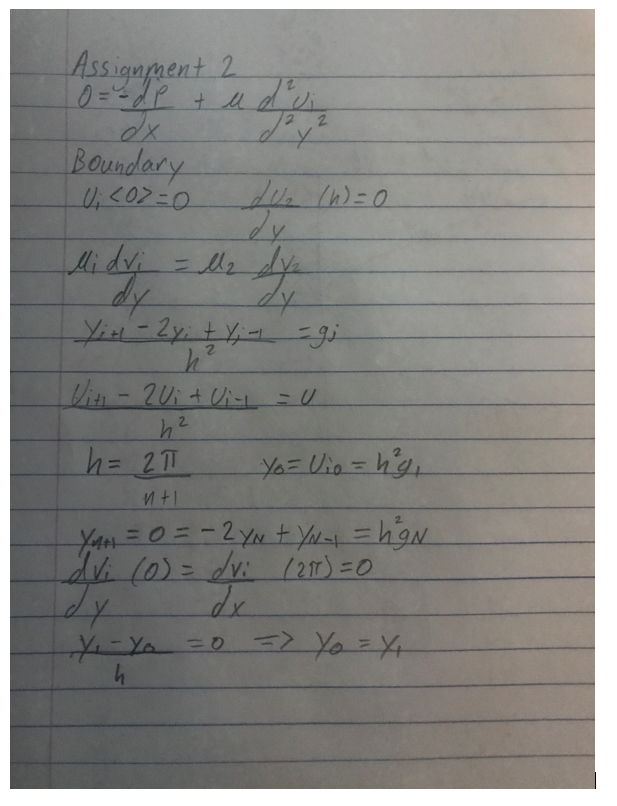 Assignment 2
0 = -dP/dx + μ d²Ui/d²y²
Boundary
Ui<0>=0 dU2/dy (h)=0
μi dvi/dy = μ2 dy2/dy
yi+1 - 2yi + yi-1/h² = gi
Ui+1 - 2Ui + Ui-1/h² = U
h = 2π/n+1 y0 = Ui0 = h²g1
yn+1 = 0 = -2yN + yN-1 = h²gN
dvi/dy (0) = dvi/dx (2π) = 0
y1 - y0/h = 0 => y0 = y1